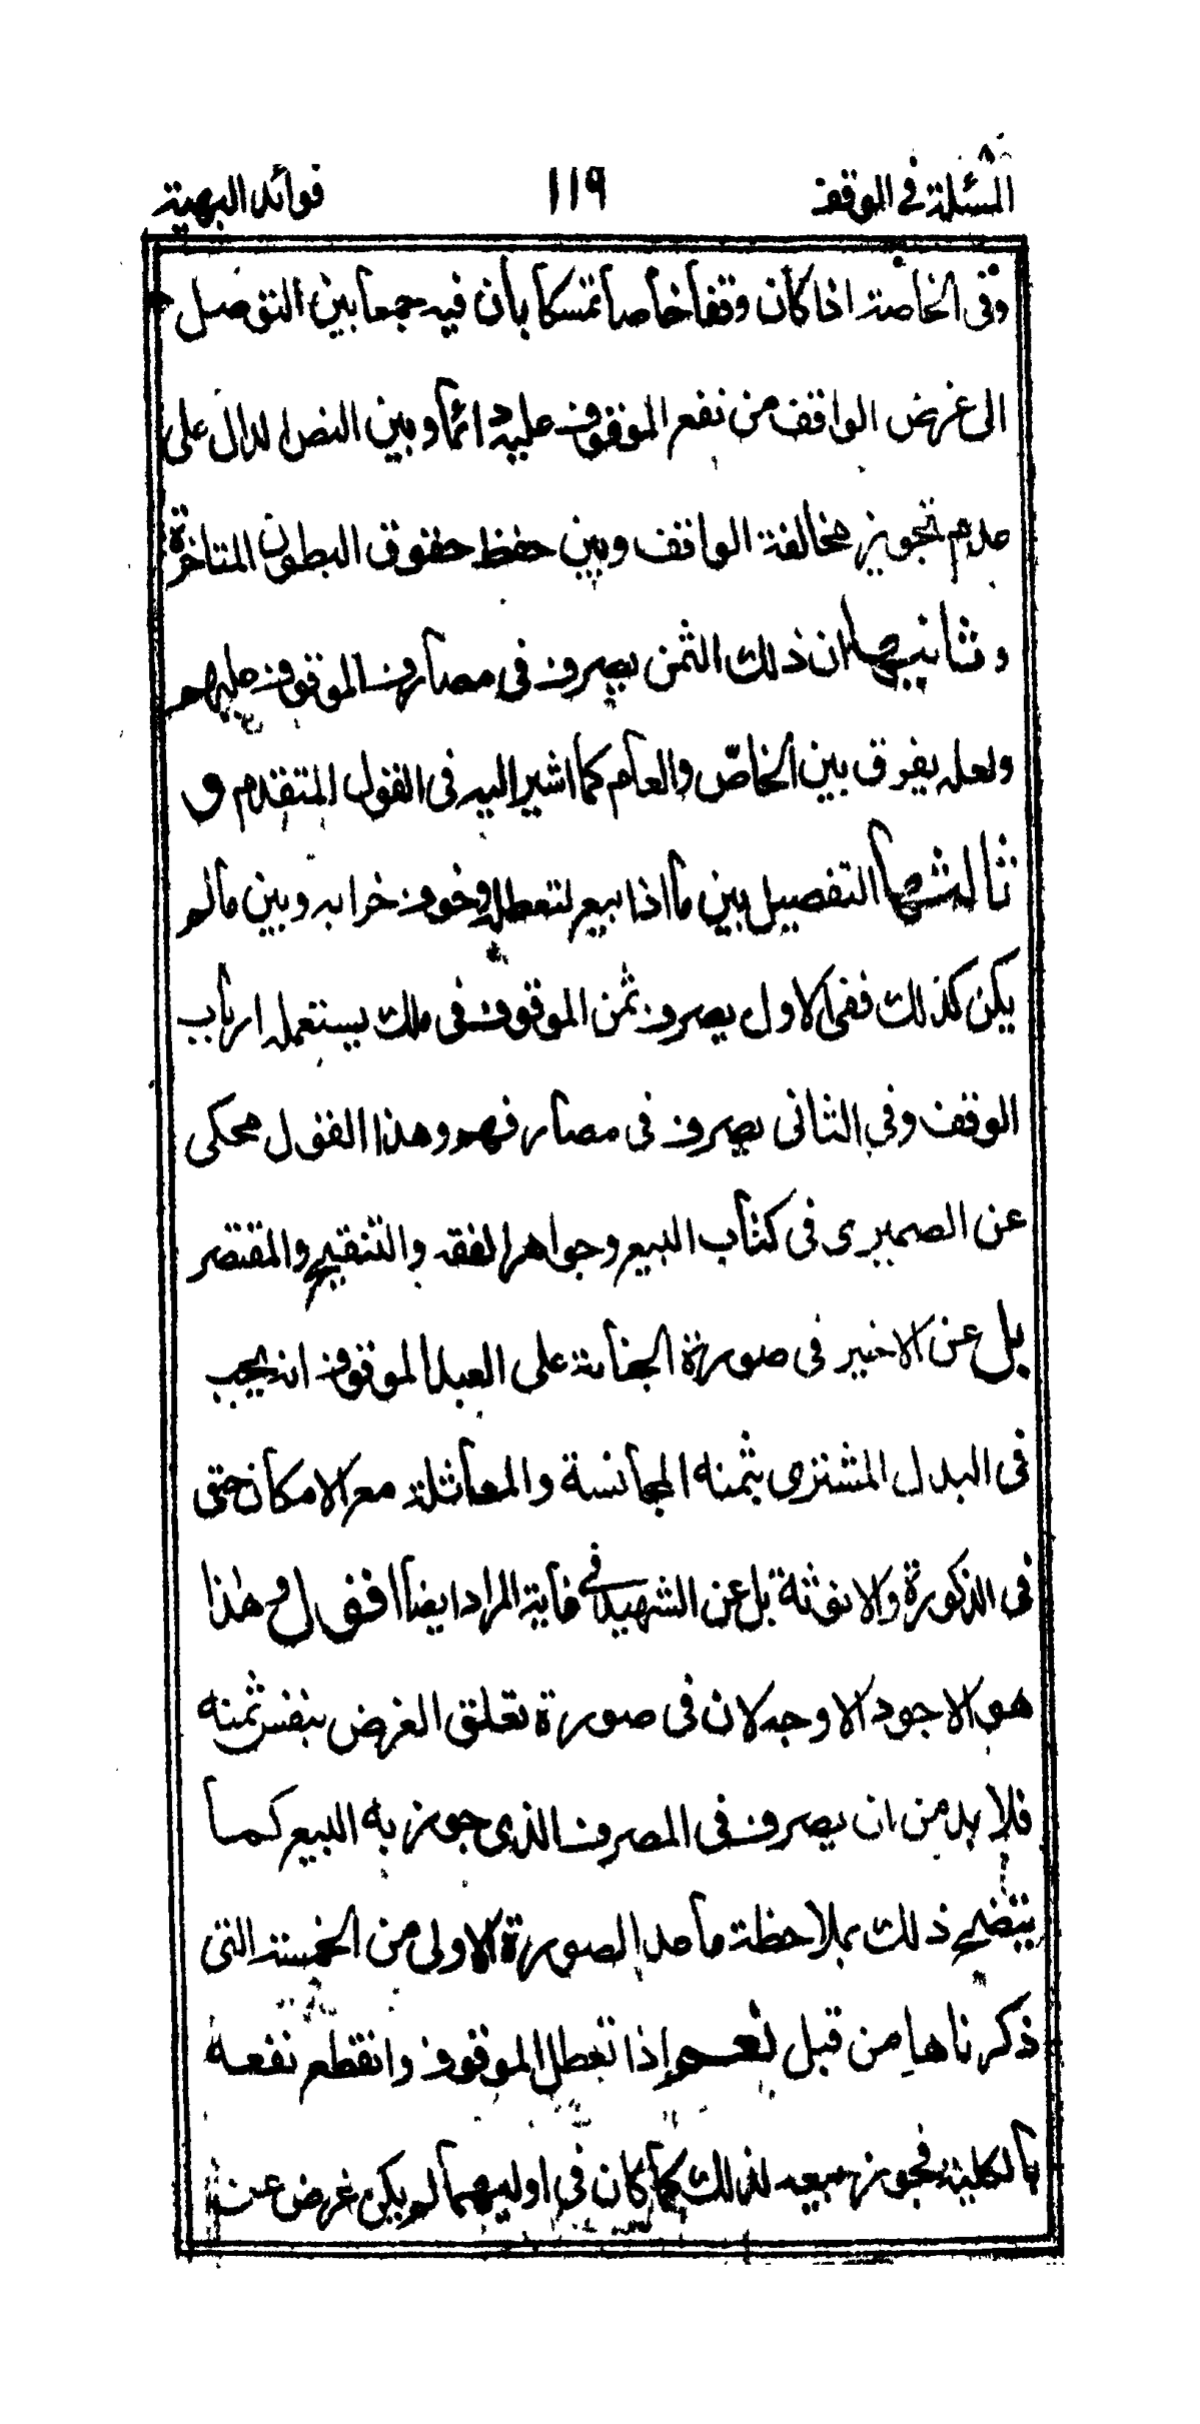 المسئلة في الوقف ١١٩ فوائد البهية
وفى الخاصة اذا كان وقفا خاصا تمسكا بان فيه جمعا بين التوصل
الى غرض الواقف من نفع الموقوف عليه دائما وبين النص الدال على
عدم تجويز مخالفة الواقف وبين حفظ حقوق البطون المتاخرة
وثانيها ان ذلك الثمن يصرف فى مصارف الموقوف عليهم
ولعله يفرق بين الخاصّ والعام كما اشير اليه فى القول المتقدم و
ثالثها التفصيل بين ما اذا بيع لتعطله وخوف خرابه وبين ما لم
يكن كذلك ففى الاول يصرف ثمن الموقوف فى ملك يستعمله ارباب
الوقف وفي الثانى يصرف فى مصارفهم وهذا القول محكى
عن الصميرى فى كتاب البيع وجواهر الفقه والتنقيح والمقتصر
بل عن الاخير فى صورة الجناية على العبد الموقوف انه يجب
فى البدل المشترى بثمنه المجانسة والمماثلة مع الامكان حتى
فى الذكورة والانوثة بل عن الشهيد فى غاية المراد ايضا اقول وهذا
هو الاجود الاوجه لان فى صورة تعلق الغرض بنفس ثمنه
فلا بد من ان يصرف فى المصرف الذى جوز به البيع كما
يتضح ذلك بملاحظة ما عدا الصورة الاولى من الخمسة التى
ذكرناها من قبل نعم إذا تعطل الموقوف وانقطع نفعه
بالكلية فجوز بيعه لذلك كما كان في اوليهما لم يكن غرض عن